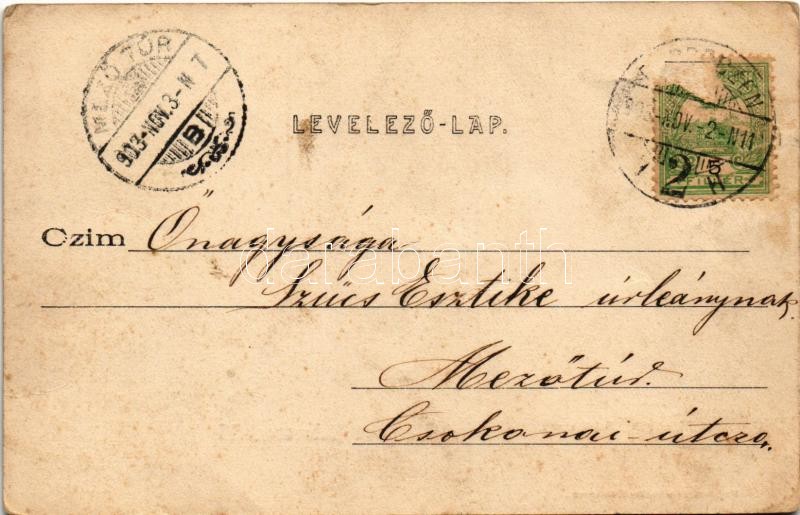 MEZŐ TÚR
903-NOV.3-N 7
B
LEVELEZŐ-LAP.
DEBRECZEN
903-NOV.-2-N11
2
FILLÉR
5
Czim Őnagysága
Szűcs Esztike úrleánynak.
Mezőtúr.
Csokonai-útcza.
darabanth